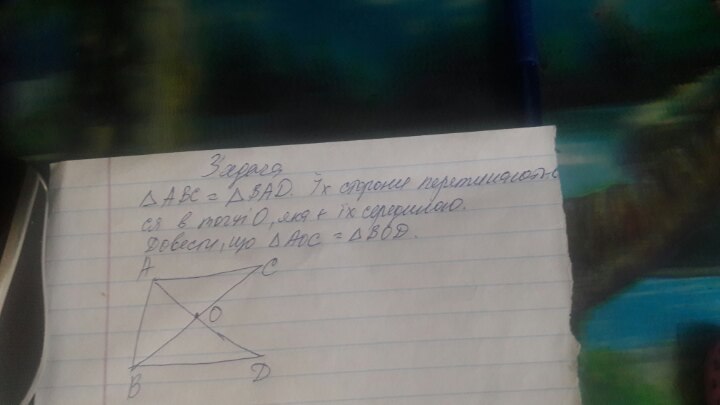 Задача
△ABC = △BAD. Їх сторони перетинають-
ся в точці O, яка є їх серединою.
Довести, що △AOC = △BOD.
A
C
O
B
D